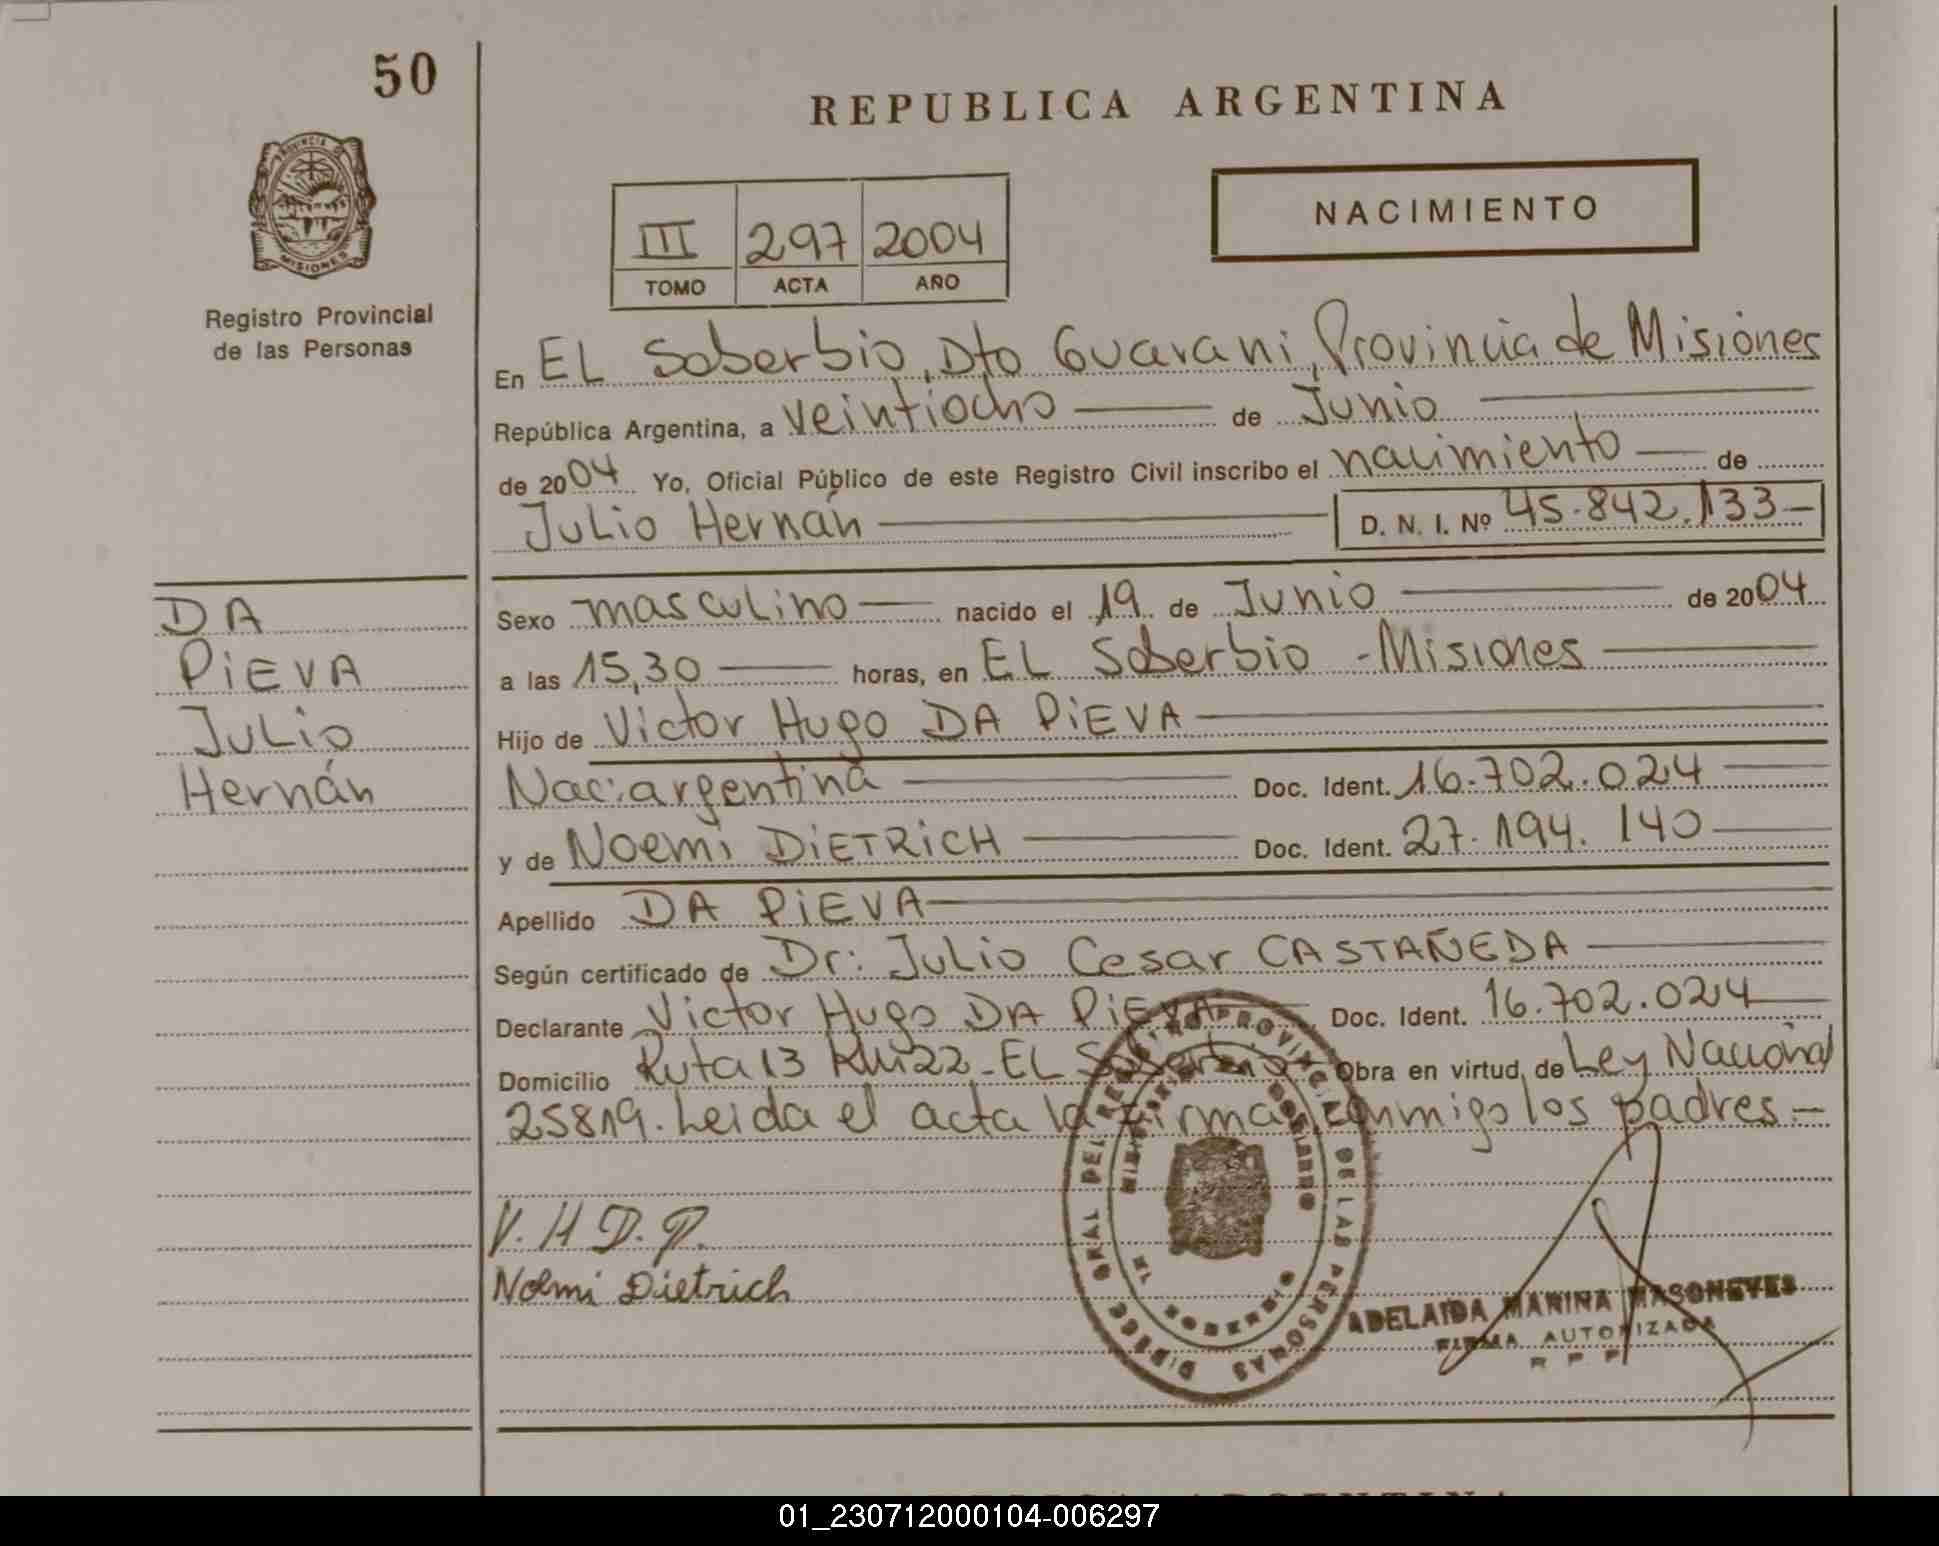 50
REPUBLICA ARGENTINA
NACIMIENTO
III 297 2004
TOMO ACTA AÑO
PROVINCIA DE
MISIONES
Registro Provincial
de las Personas
En EL Soberbio, Dto Guarani, Provincia de Misiones
República Argentina, a veintiocho de Junio
de 2004 Yo, Oficial Público de este Registro Civil inscribo el nacimiento de
Julio Hernán D. N. I. Nº 45.842.133
DA
PiEVA
Julio
Hernán
Sexo masculino nacido el 19 de Junio de 2004
a las 15,30 horas, en EL Soberbio - Misiones
Hijo de Victor Hugo DA PiEVA
Nac: argentina Doc. Ident. 16.702.024
y de Noemi DiETRiCH Doc. Ident. 27.194.140
Apellido DA PiEVA
Según certificado de Dr: Julio Cesar CASTAÑEDA
Declarante Victor Hugo DA PiEVA Doc. Ident. 16.702.024
Domicilio Ruta 13 Km 22 - EL Soberbio Obra en virtud de Ley Nacional
25819. Leida el acta la firman conmigo los padres.-
V. H D. P.
Noemi Dietrich
PROVINCIAL DE LAS PERSONAS
ADELAIDA MARINA MASONEVES
FIRMA AUTORIZADA
R P P
01_230712000104-006297